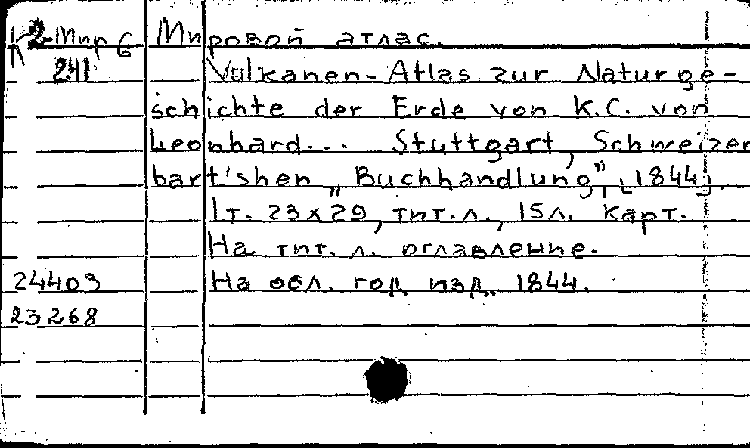 К 2-Мир 6 Мировой атлас.
241 Vulkanen-Atlas zur Naturge-
schichte der Erde von K.C. von
Leonhard... Stuttgart, Schweizer
bart'shen „Buchhandlung", [1844].
1т. 23х29, тит.л., 15л. карт.
На тит. л. оглавление.
24403 На обл. год изд. 1844.
23268